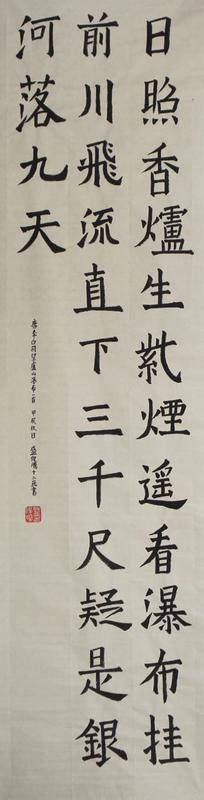 日照香爐生紫煙遥看瀑布挂
前川飛流直下三千尺疑是銀
河落九天
唐李白詩望廬山瀑布一首 甲戌秋日 十二歲書